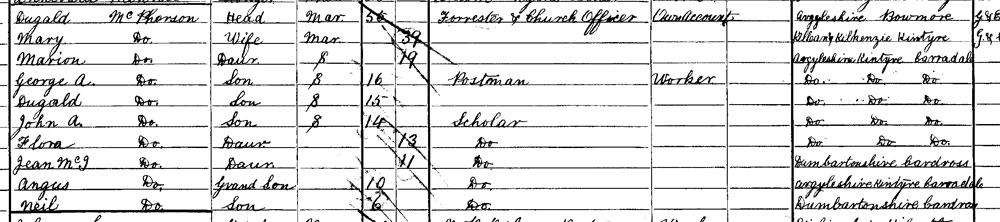 Dugald McPherson Head Mar 56 Forrester & Church Officer Own Account Argyleshire Bowmore G&E
Mary Do. Wife Mar 39 Kilean & Kilkenzie Kintyre
Marion Do. Daur S 19 Argyleshire Kintyre Carradale
George A. Do. Son S 16 Postman Worker Do. Do. Do.
Dugald Do. Son S 15 Do. Do. Do.
John A. Do. Son S 14 Scholar Do. Do. Do.
Flora Do. Daur 13 Do Do. Do. Do.
Jean McI Do. Daur 11 Do. Dumbartonshire Cardross
Angus Do. Grand Son 10 Do. Argyleshire Kintyre Carradale
Neil Do. Son 6 Do. Dumbartonshire Cardross